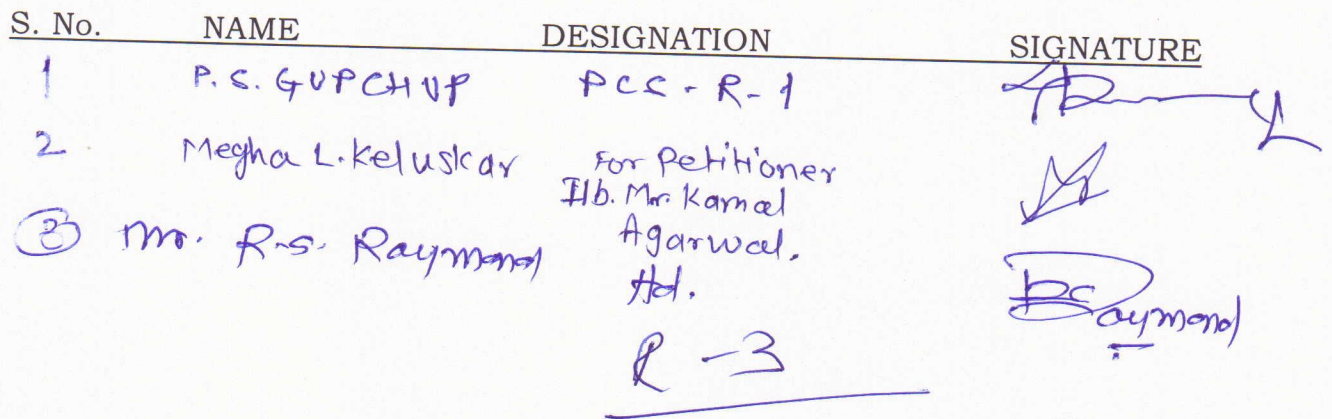 S. No. NAME DESIGNATION SIGNATURE
1 P.S. GUPCHUP PCS - R-1
2 Megha L. Keluskar For Petitioner
Ilb. Mr. Kamal
Agarwal,
③ Mr. R.S. Raymond
Raymond
R - 3